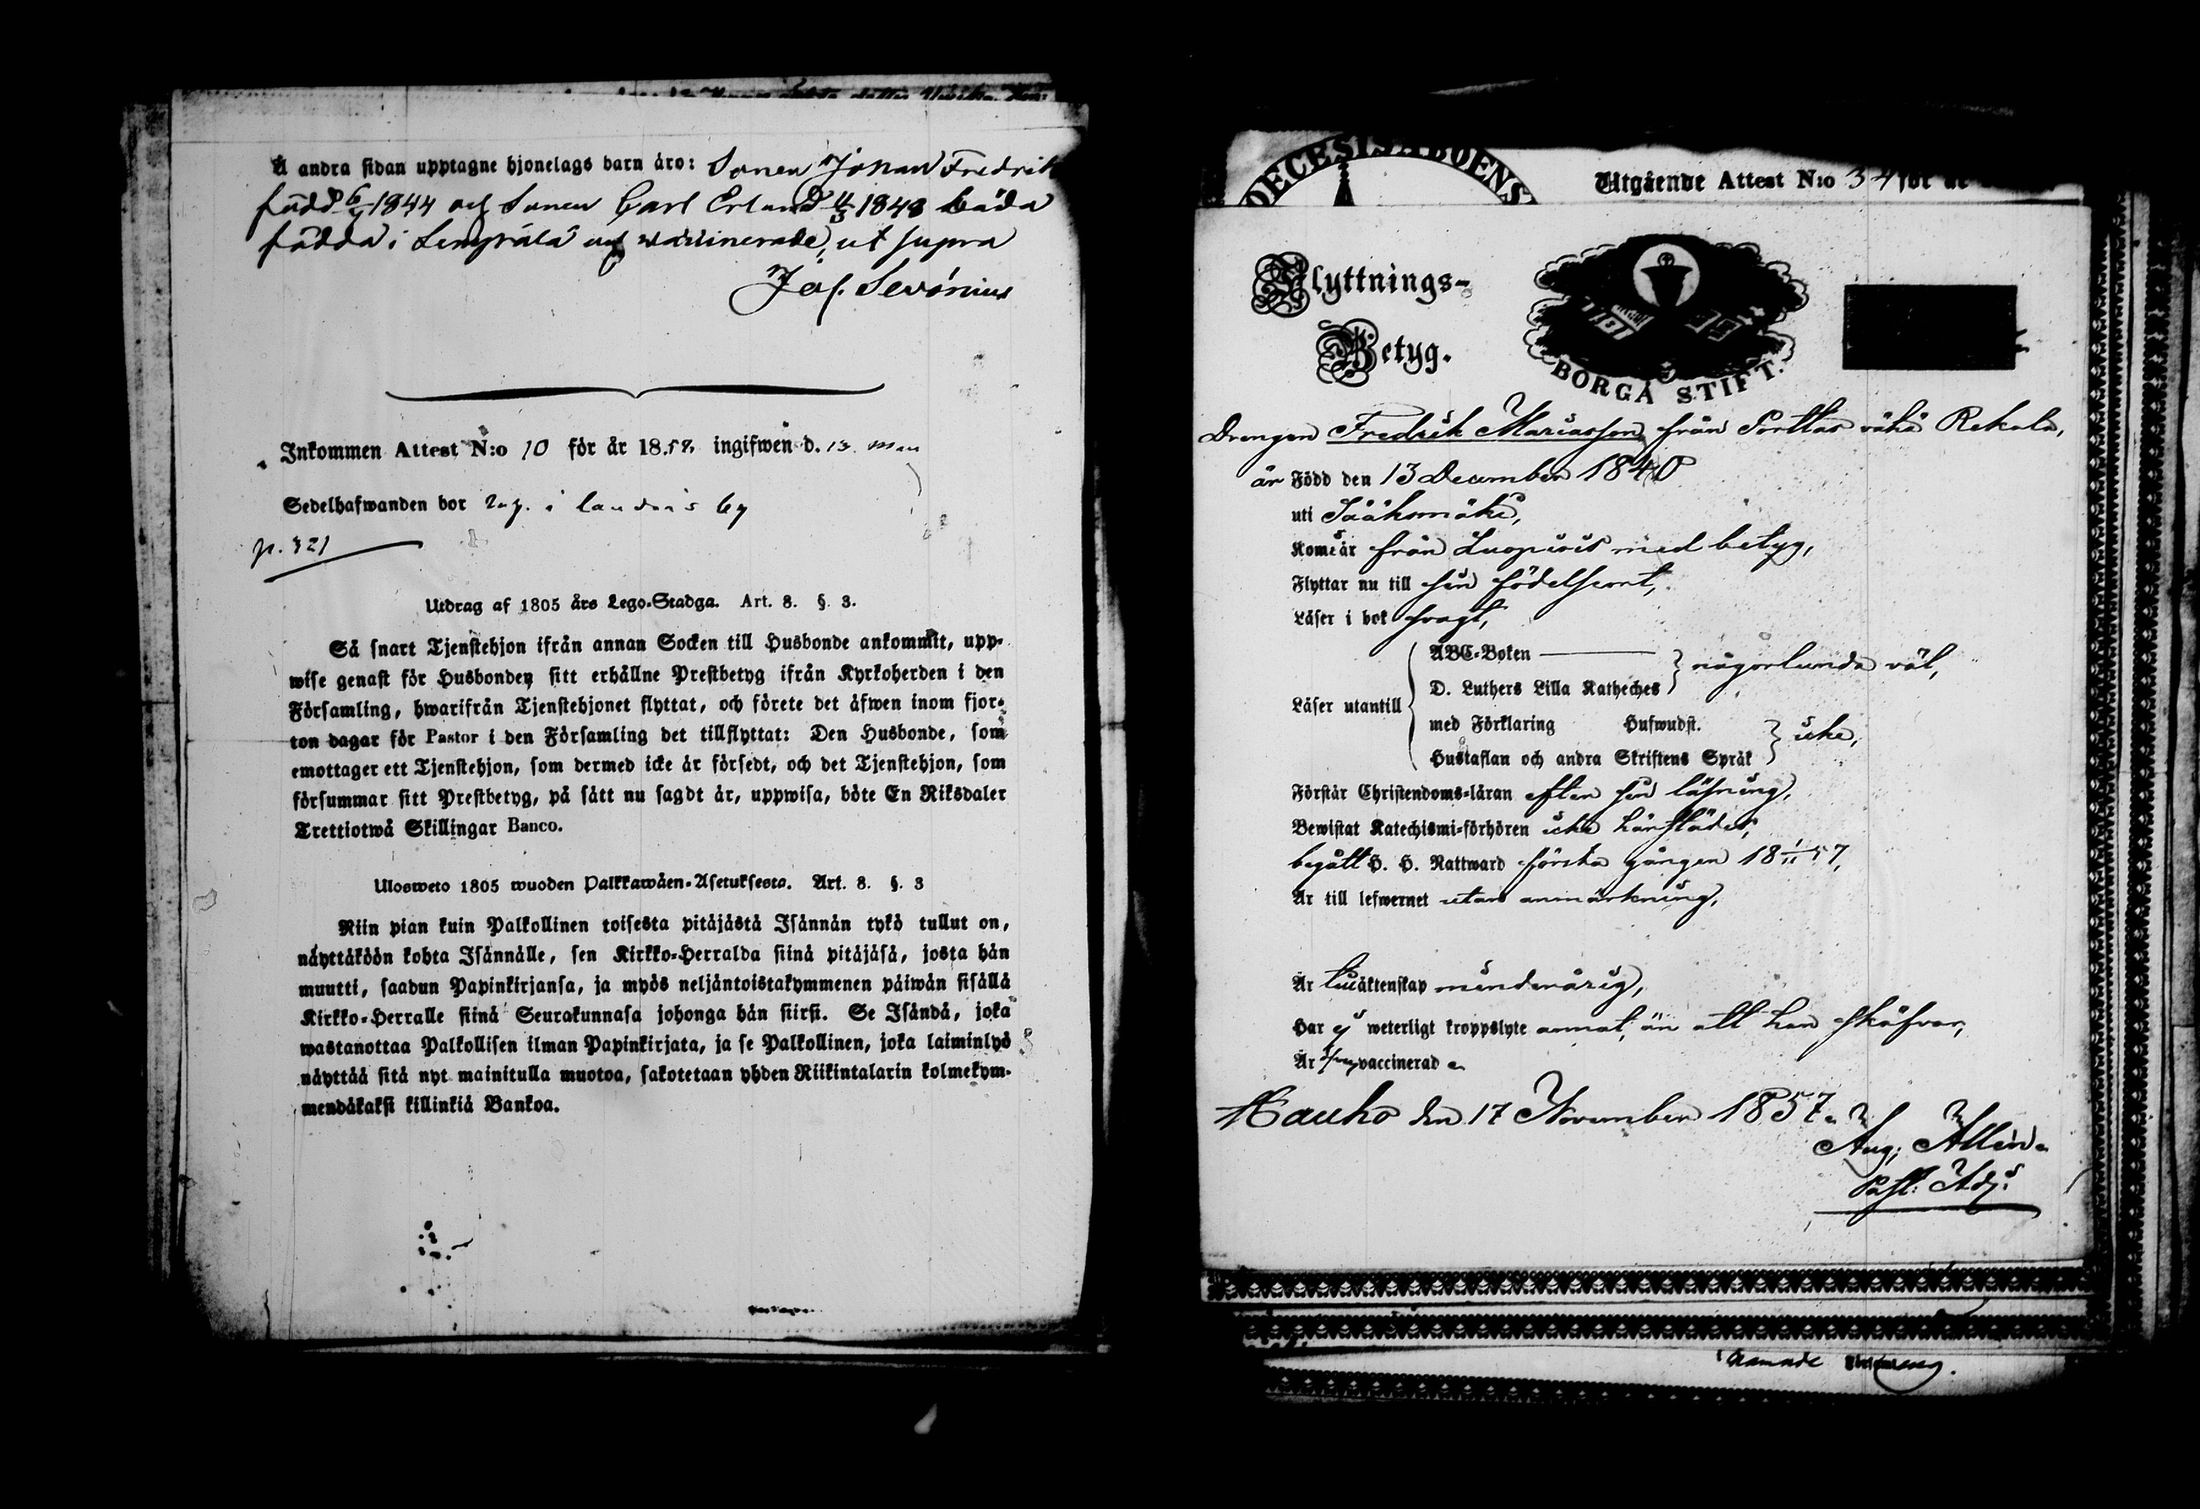 Å andra sidan upptagne hjonelags barn äro: Sonen Johan Fredrik
född 1844 och Sonen Carl Erland 1848 båda
födda i och vaccinerade, ut supra
Jos. Sevónius
Inkommen Attest N:o 10 för år 1858 ingifwen d. 13
Sedelhafwanden bor i by
p. 321
Utdrag af 1805 års Lego-Stadga. Art. 8. §. 3.
Så snart Tjenstehjon ifrån annan Socken till Husbonde ankommit, upp-
wise genast för Husbonden sitt erhållne Prestbetyg ifrån Kyrkoherden i den
Församling, hwarifrån Tjenstehjonet flyttat, och förete det äfwen inom fjor-
ton dagar för Pastor i den Församling det tillflyttat: Den Husbonde, som
emottager ett Tjenstehjon, som dermed icke är försedt, och det Tjenstehjon, som
försummar sitt Prestbetyg, på sätt nu sagdt är, uppwisa, böte En Riksdaler
Trettiotwå Skillingar Banco.
Ulosweto 1805 wuoden Palkkawäen-Asetuksesta. Art. 8. §. 3
Niin pian kuin Palkollinen toisesta pitäjästä Isännän tykö tullut on,
näyttäköön kohta Isännälle, sen Kirkko-Herralda siinä pitäjäsä, josta hän
muutti, saadun Papinkirjansa, ja myös neljäntoistakymmenen päiwän sisällä
Kirkko-Herralle siinä Seurakunnasa johonga hän siirsi. Se Isändä, joka
wastanottaa Palkollisen ilman Papinkirjata, ja se Palkollinen, joka laiminlyö
näyttää sitä nyt mainitulla muotoa, sakotetaan yhden Riikintalarin kolmekym-
mendäkaksi killinkiä Bankoa.
DECESIS ABOENS
Utgående Attest N:o 34 för år
Flyttnings-
Betyg.
BORGÅ STIFT.
Drengen Fredrik Mariasson från Porttas vähä Rekola,
är Född den 13 December 1840
uti Sääksmäki,
Kom är från Luopiois med betyg,
Flyttar nu till sin födelseort,
Läser i bok svagt,
Läser utantill
ABC-Boken
D. Luthers Lilla Katheches
någorlunda väl,
med Förklaring Hufwudst.
Hustaflan och andra Skriftens Språk
icke,
Förstår Christendoms-läran efter sin läsning,
Bewistat Katechismi-förhören icke härstädes,
begått H. H. Nattward första gången 18 1/11 57,
Är till lefwernet utan anmärkning,
Är till äktenskap minderårig,
Har ej weterligt kroppslyte annat, än att han
Är vaccinerad
Hauho den 17 November 1857.
Aug: Allén
Past: Adj: